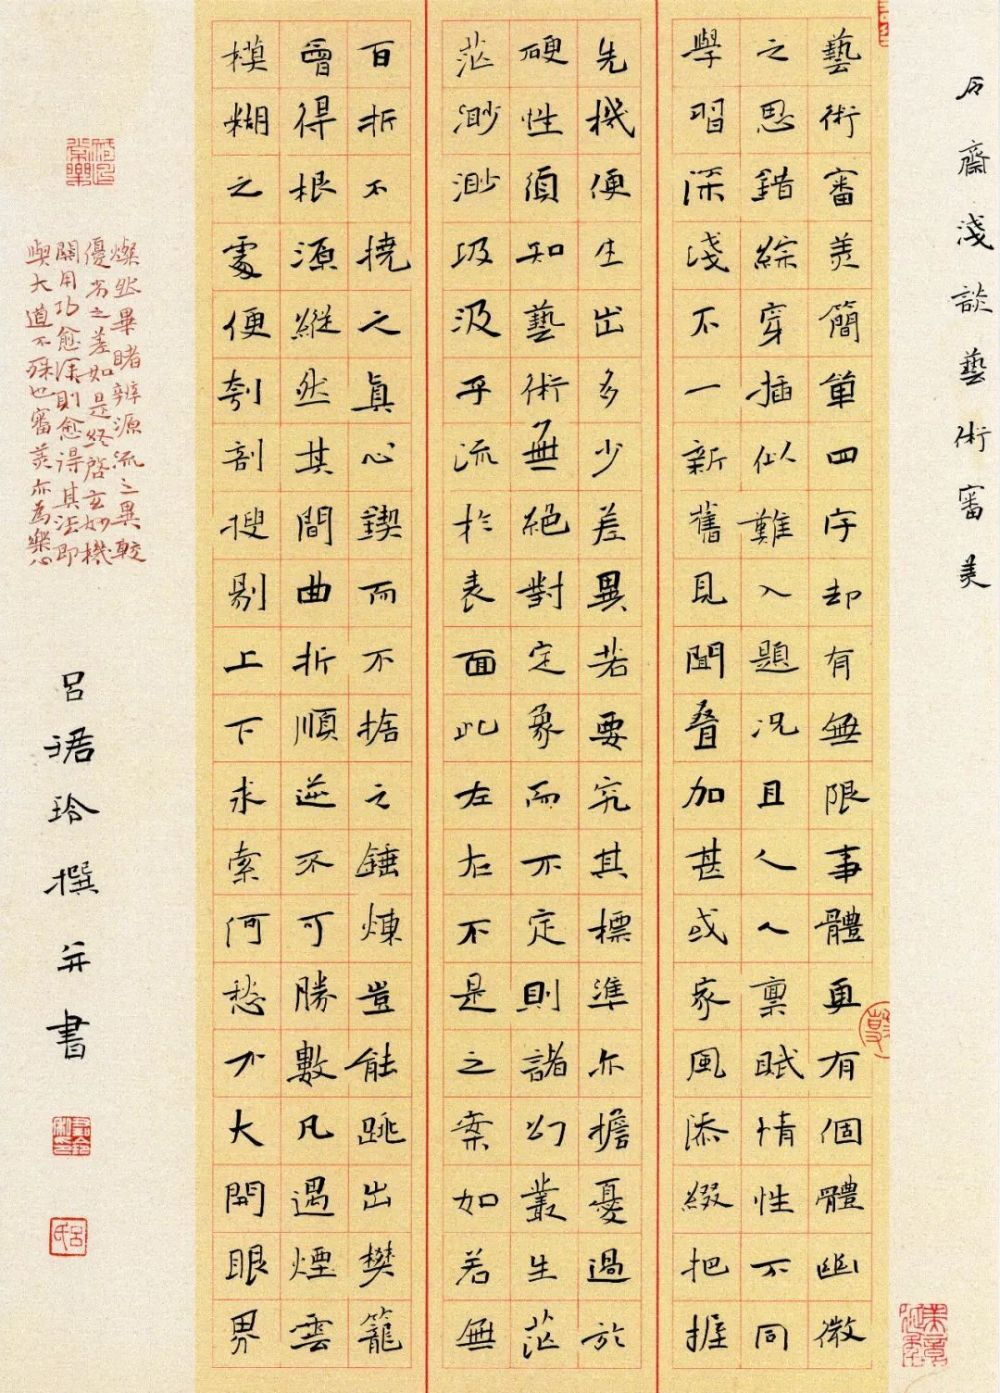 齋淺談藝術審美
藝術審美簡單四字却有無限事體更有個體幽微
之思錯綜穿插似難入題況且人人禀賦情性不同
學習深淺不一新舊見聞叠加甚或家風添綴把握
先機便生出多少差異若要究其標準亦擔憂過於
硬性須知藝術無絕對定象而不定則諸幻叢生茫
茫渺渺圾汲乎流於表面此左右不是之案如若無
百折不撓之真心鍥而不捨之錘煉豈能跳出樊籠
曾得根源縱然其間曲折順逆不可勝數凡遇煙雲
模糊之處便刳剖搜剔上下求索何愁不大開眼界
燦然畢睹辨源流之異較
優劣之差如是終啓玄妙機
關用功愈深則愈得其法即
與大道不殊也審美亦為樂心
呂玲撰并書
呂氏